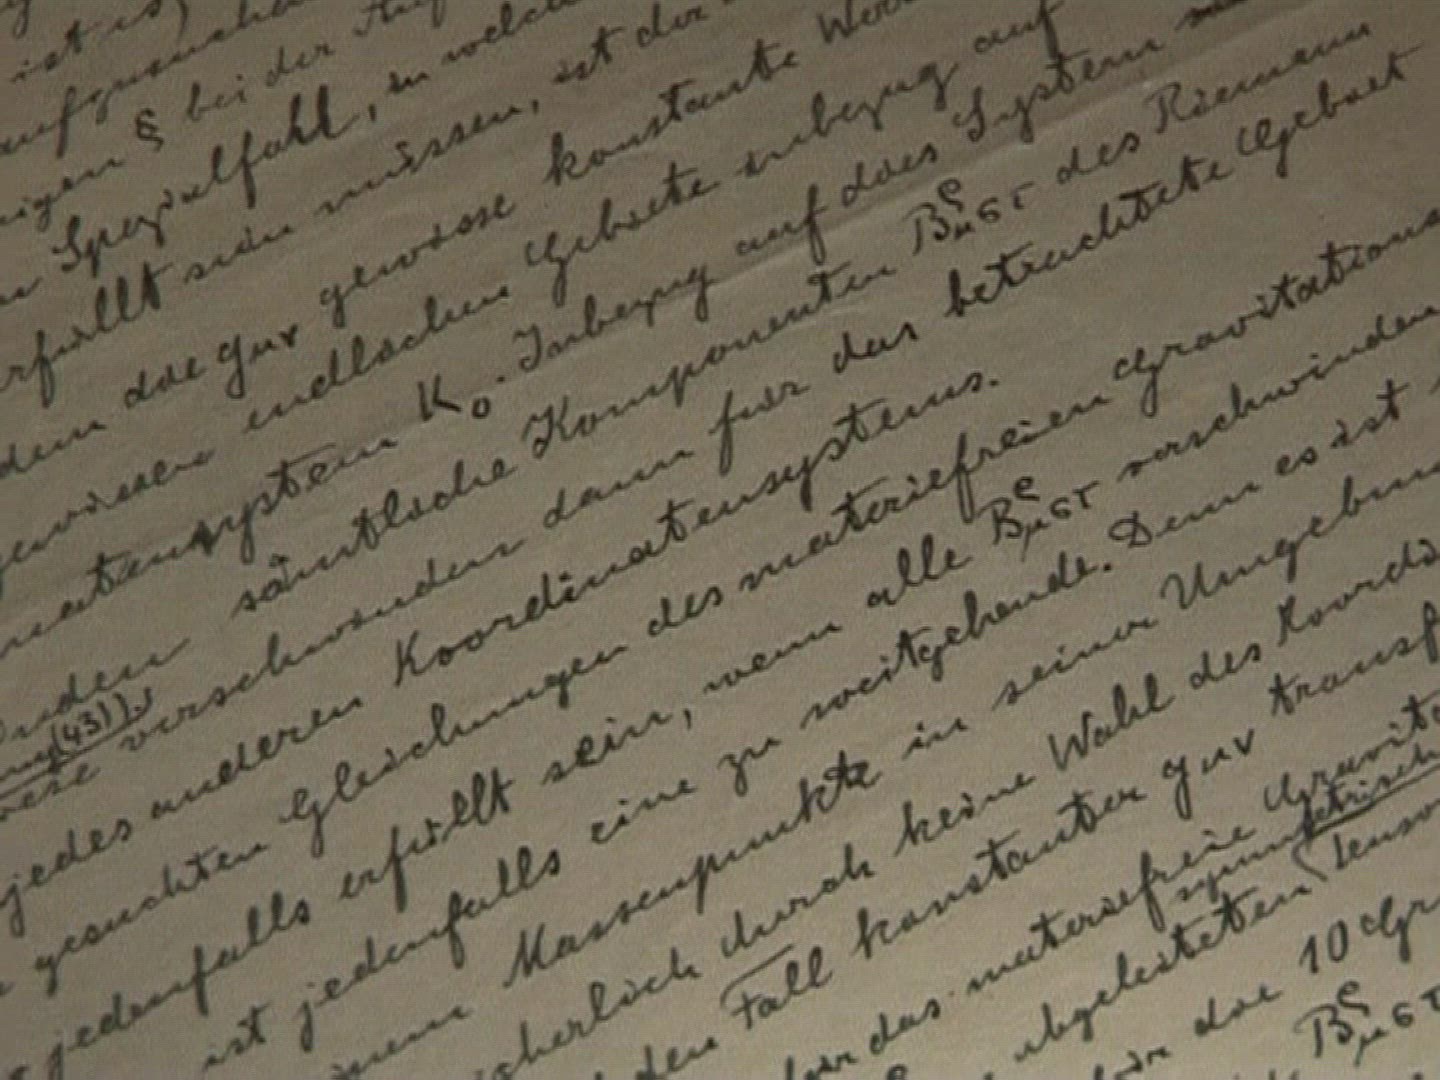 ist es,
aufzusuchen
igen § bei der Auf
Spezialfall, in welch
erfüllt sein müssen, ist der
dem die gμν gewisse konstante Wer
gewissen endlichen Gebiete inbezug auf
natensystem K₀. Inbezug auf dies System
inden sämtliche Komponenten Bᵨμστ des Riemann
ung (43)).
iese verschwinden dann für das betrachtete Gebiet
jedes anderen Koordinatensystems.
gesuchten Gleichungen des materiefreien Gravitations
jedenfalls erfüllt sein, wenn alle Bᵨμστ verschwinden
ist jedenfalls eine zu weitgehende. Denn es ist
inem Massenpunkte in seiner Umgebun
icherlich durch keine Wahl des Koordi
den Fall konstanter gμν transf
für das materiefreie Gravita
symmetrisch
abgeleiteten Tenso
die 10 Gr
Bᵨμστ